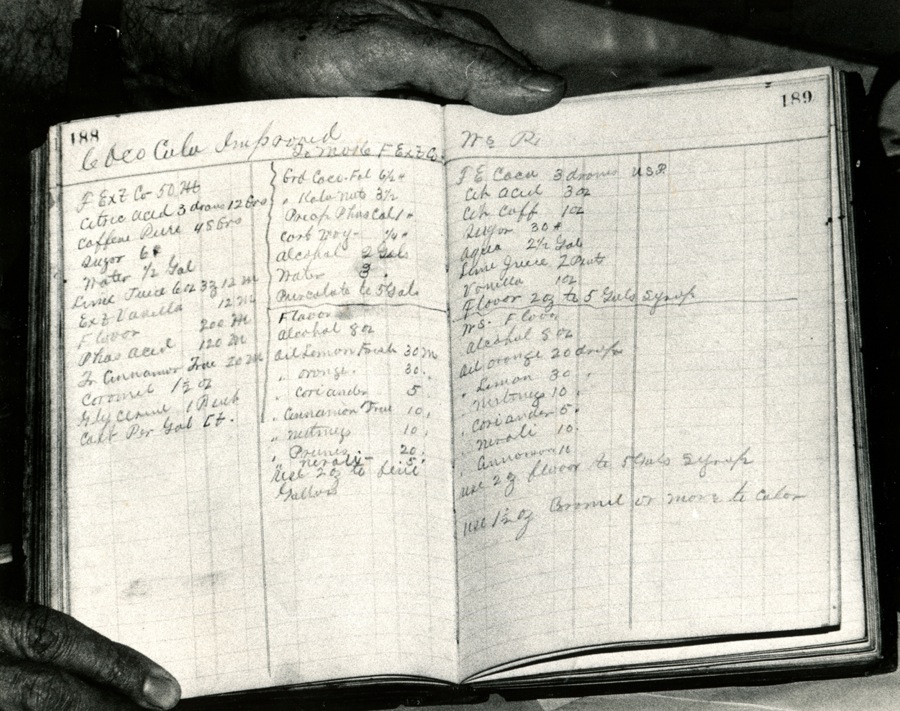 188
Coco Cola Improved
F Ext Co 50
Citric acid 3 drams 12 Grs
Caffeine Pure 48 Grs
Sugar 6#
Water 1/2 Gal
Lime Juice 6oz 12 M
Ext Vanilla 12 M
Flavor 200 M
Phos acid 120 M
Tr Cinnamon True 20 M
Coromel 1½ oz
Glycerine 1 Pint
Cost Per Gal
To Make F Ext Co
Grd Coco-Fol 6½ #
" Kola Nuts 3½
Precip Phos Cal 1 "
¼ "
Alcohol 2 Gals
Water 3 "
Percolate to 5 Gals
Flavor
Alcohol 8 oz
Oil Lemon Fresh 30 M
" orange 30 "
" coriander 5
" Cinnamon True 10 "
" Nutmegs 10 "
" 20 "
neroli 5
use 2oz to five
Gallons
189
F E Coca 3 drams USP
Cit acid 3oz
Cit Caff 1oz
Sugar 30 #
Aqua 2½ Gal
Lime Juice 2 Pints
Vanilla 1oz
Flavor 2oz to 5 Gals Syrup
Flavor
Alcohol 8 oz
Oil orange 20 drops
" Lemon 30 "
" Nutmegs 10 "
" coriander 5 "
" neroli 10 "
" Cinnamon 10
use 2oz flavor to 5 Gals Syrup
use 1½ oz or more to color